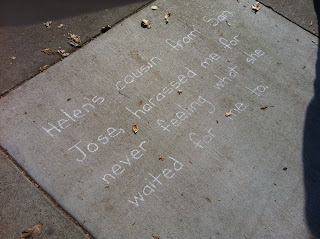 Helen's cousin from San
Jose, harassed me for
never feeling what she
waited for me to.